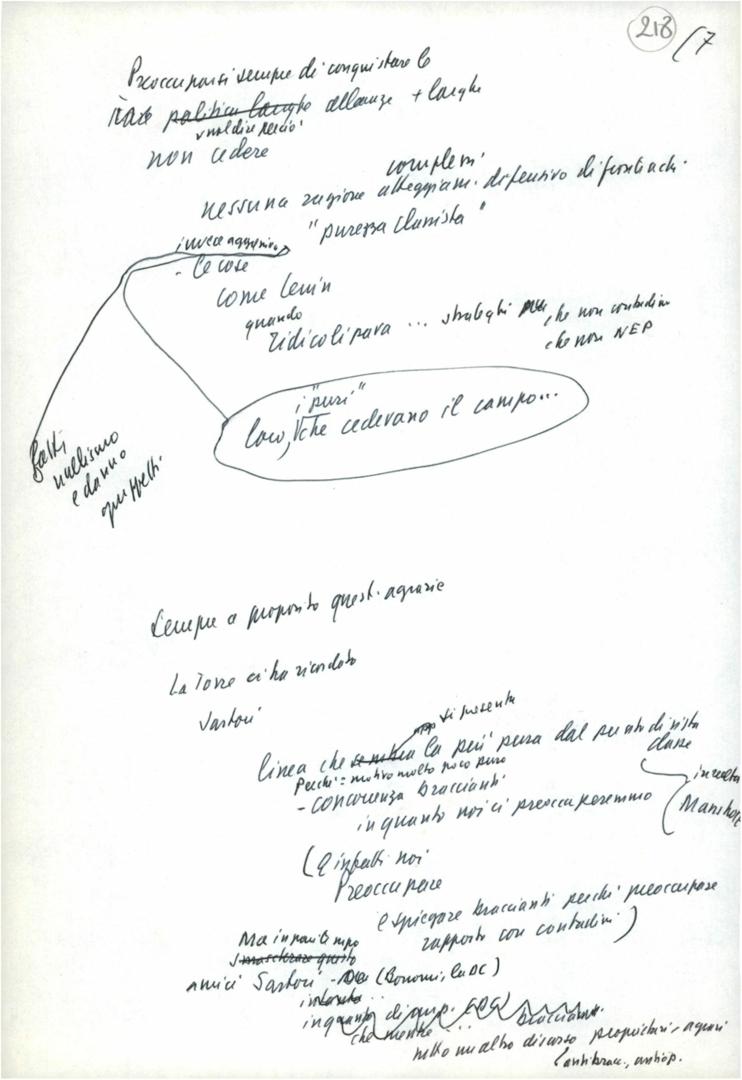 218
(7
Preoccuparsi sempre di conquistare le
politica larghe alleanze + larghe
vuol dire perciò
non cedere
complessi
nessuna ragione atteggiam. difensivo di fronte a chi
"purezza classista"
invece
- le cose
come Lenin
quando
ridicolizzava ... strateghi che non contadini
che non NEP
i "puri"
loro, che cedevano il campo...
fatti
nullismo
e danno
Sempre a proposito quest. agrarie
La Torre ci ha ricordato
Sartori
si presenta
linea che sembra la più pura dal punto di vista
classe
Perché = motivo molto poco puro
- concorrenza braccianti
in quanto noi ci preoccuperemmo
(E infatti noi
Preoccupare
e spiegare braccianti perché preoccupare
rapporto con contadini)
Ma in pari tempo
smascherare questo
amici Sartori - (Bonomi, la DC)
intanto ..
in quanto
che mentre .. braccianti.
altro discorso proprietari, agrari
(antibracc., antiop.